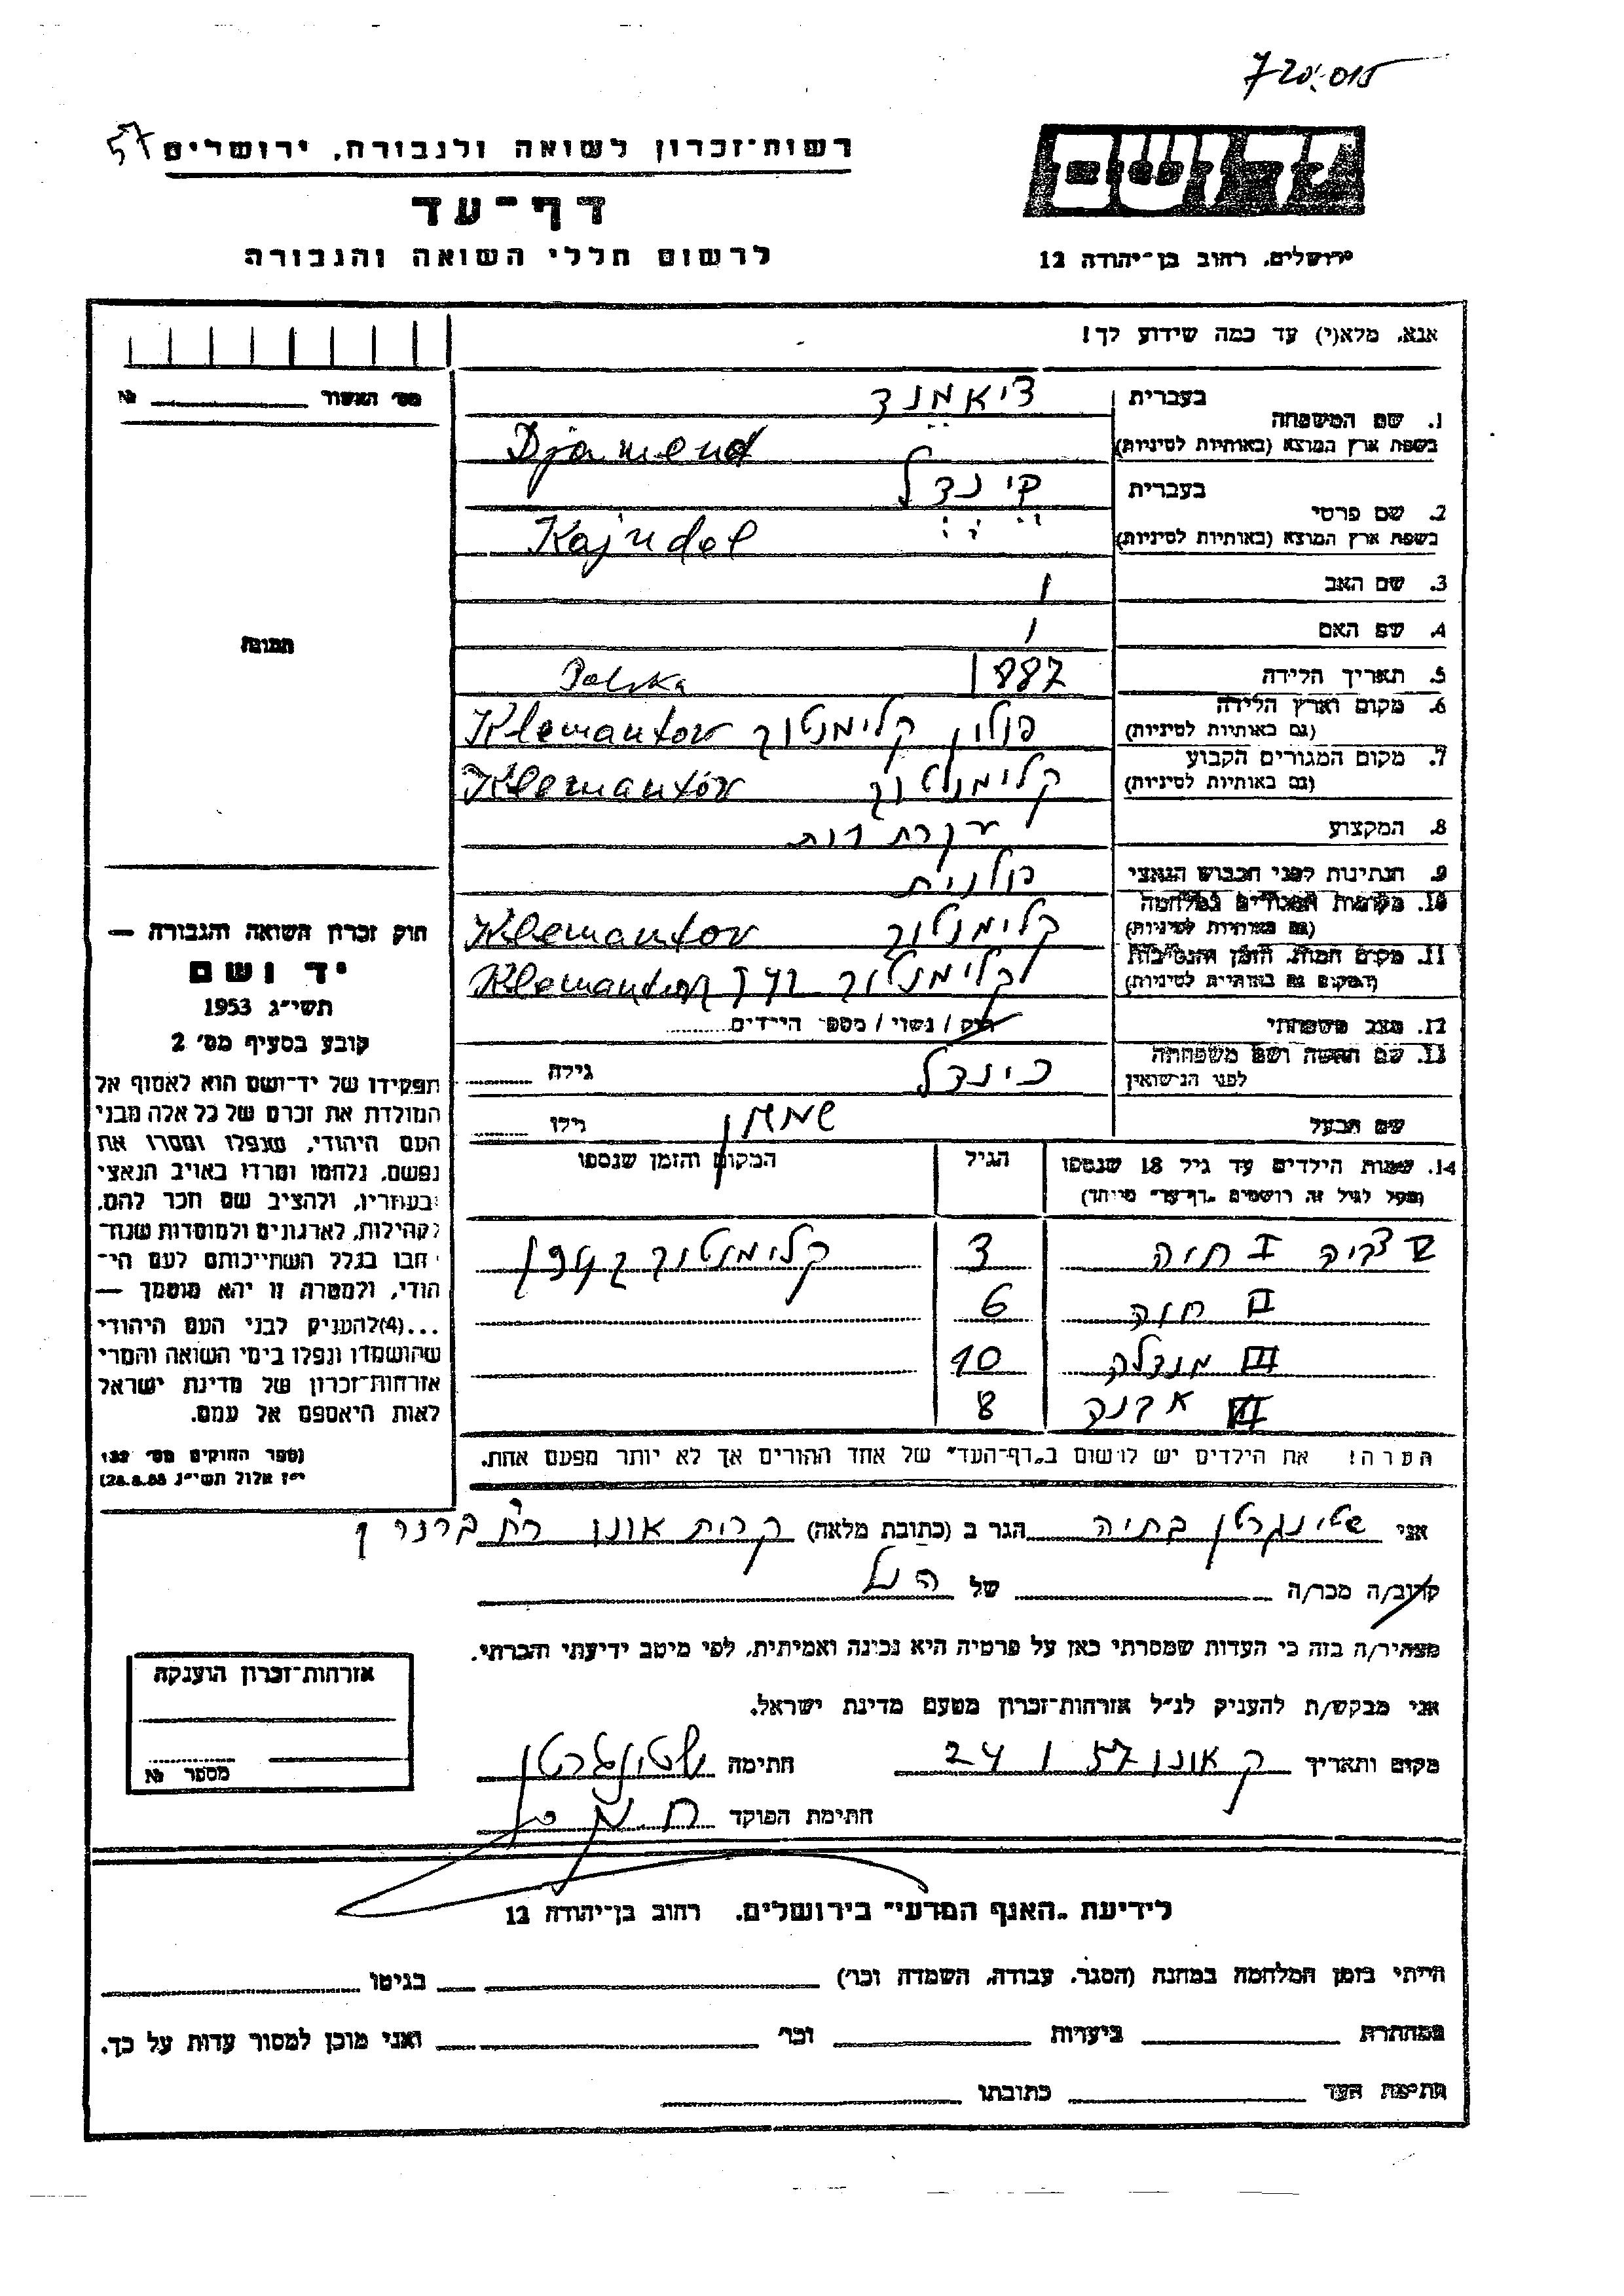 רשות־זכרון לשואה ולגבורה, ירושלים 57
דף־עד
לרשום חללי השואה והגבורה
ירושלים, רחוב בן־יהודה 12
אנא, מלא(י) עד כמה שידוע לך!
מס׳ האשור № 
1. שם המשפחה
בעברית דיאמנד
בשפת ארץ המוצא (באותיות לטיניות) Djamend
2. שם פרטי
בעברית קינדל
בשפת ארץ המוצא (באותיות לטיניות) Kajndel
3. שם האב
4. שם האם
5. תאריך הלידה 1887
6. מקום וארץ הלידה (גם באותיות לטיניות) פולין קלימנטוב Klemantov Polska
7. מקום המגורים הקבוע (גם באותיות לטיניות) קלימנטוב Klemantóv
8. המקצוע עקרת בית
9. הנתינות לפני הכבוש הנאצי פולנית
10. מקומות המגורים במלחמה (גם באותיות לטיניות) קלימנטוב Klemantov
11. מקום המות, הזמן והנסיבות (המקום גם באותיות לטיניות) קלימנטוב Klemantov
12. מצב משפחתי רוק / נשוי / מספר הילדים
13. שם האשה ושם משפחתה לפני הנישואין קינדל גילה
שם הבעל שמעון גילו
14. שמות הילדים עד גיל 18 שנספו הגיל המקום והזמן שנספו
(מעל לגיל זה רושמים „דף־עד״ מיוחד)
צביה I חיה 3 קלימנטוב
II חוה 6
III מנדלה 10
8
הערה! את הילדים יש לרשום ב„דף־העד״ של אחד ההורים אך לא יותר מפעם אחת.
תמונה
חוק זכרון השואה והגבורה —
יד ושם
תשי״ג 1953
קובע בסעיף מס׳ 2
תפקידו של יד־ושם הוא לאסוף אל
המולדת את זכרם של כל אלה מבני
העם היהודי, שנפלו ומסרו את
נפשם, נלחמו ומרדו באויב הנאצי
ובעוזריו, ולהציב שם וזכר להם,
לקהילות, לארגונים ולמוסדות שנח־
רבו בגלל השתייכותם לעם הי־
הודי, ולמטרה זו יהא מוסמך —
...(4) להעניק לבני העם היהודי
שהושמדו ונפלו בימי השואה והמרי
אזרחות־זכרון של מדינת ישראל
לאות היאספם אל עמם.
(ספר החוקים מס׳ 132
י״ז אלול תשי״ג 28.8.53)
אני שטינגרטן בתיה הגר ב (כתובת מלאה) קרית אונו רח׳ ברנר
קרוב/ה מכר/ה של הנ״ל
מצהיר/ה בזה כי העדות שמסרתי כאן על פרטיה היא נכונה ואמיתית, לפי מיטב ידיעתי והכרתי.
אני מבקש/ת להעניק לנ״ל אזרחות־זכרון מטעם מדינת ישראל.
מקום ותאריך ק אונו 24 1 57 חתימה שטינגרטן
חתימת הפוקד
אזרחות־זכרון הוענקה
מספר №
לידיעת „האגף המדעי״ בירושלים, רחוב בן־יהודה 12
הייתי בזמן המלחמה במחנה (הסגר, עבודה, השמדה וכו׳) בגיטו
במחתרת ביערות וכו׳ ואני מוכן למסור עדות על כך.
חתימת העד כתובתו